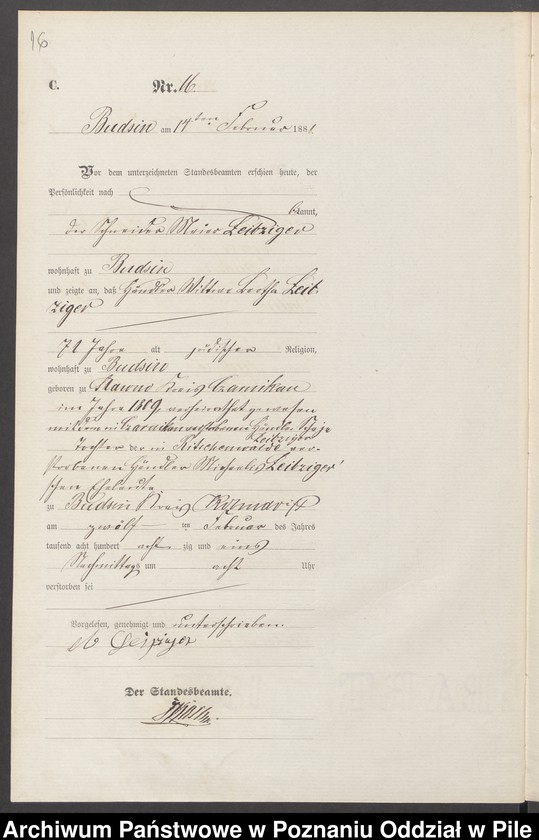 16
C. Nr. 16.
Budsin am 14ten Februar 1881.
Vor dem unterzeichneten Standesbeamten erschien heute, der
Persönlichkeit nach
bekannt,
der Schneider Meier Leibziger
wohnhaft zu Budsin
und zeigte an, daß Händler Wittwe Bertha Leib
ziger
71 Jahre alt jüdischer Religion,
wohnhaft zu Budsin
geboren zu Kreis Czarnikau
im Jahre 1809, verheirathet gewesen
mit dem in verstorbenen Händler
Leibziger
Tochter der in Ritschenwalde ver-
storbenen Händler Michaelis Leibziger'
schen Eheleute
zu Budsin Kreis
am zwölf ten Februar des Jahres
tausend acht hundert acht zig und eins
Nachmittags um acht Uhr
verstorben sei
Vorgelesen, genehmigt und unterschrieben.
M Leipziger
Der Standesbeamte.
Archiwum Państwowe w Poznaniu Oddział w Pile